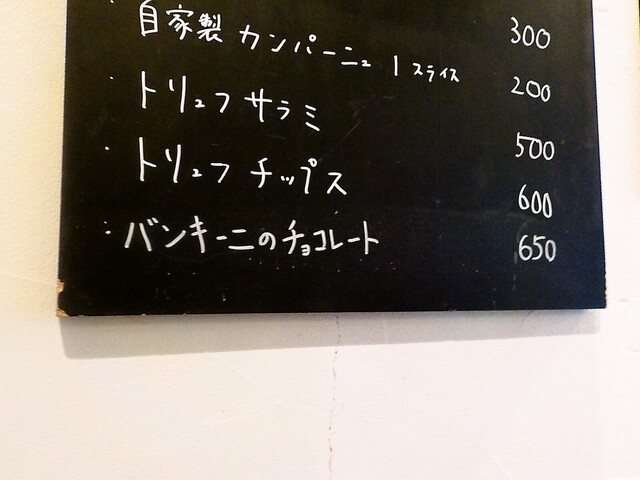 300
・自家製 カンパーニュ 1スライス 200
・トリュフサラミ 500
・トリュフ チップス 600
・バンキーニのチョコレート 650